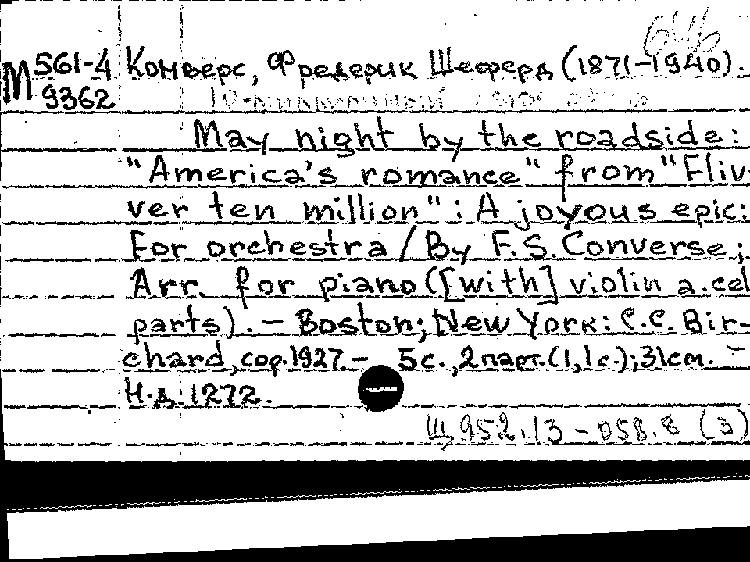 646
М 561-4 Конверс, Фредерик Шеферд (1871-1940).
9362
May night by the roadside:
"America's romance" from "Fliv-
ver ten million": A joyous epic:
For orchestra / By F.S. Converse;
Arr. for piano ([with] violin a. cel
parts). – Boston; New York: C.C. Bir-
chard, cop. 1927. – 5 с., 2 парт. (1,1 с.); 31 см. –
Н.д. 1272.
Щ952.13-058.8 (3)